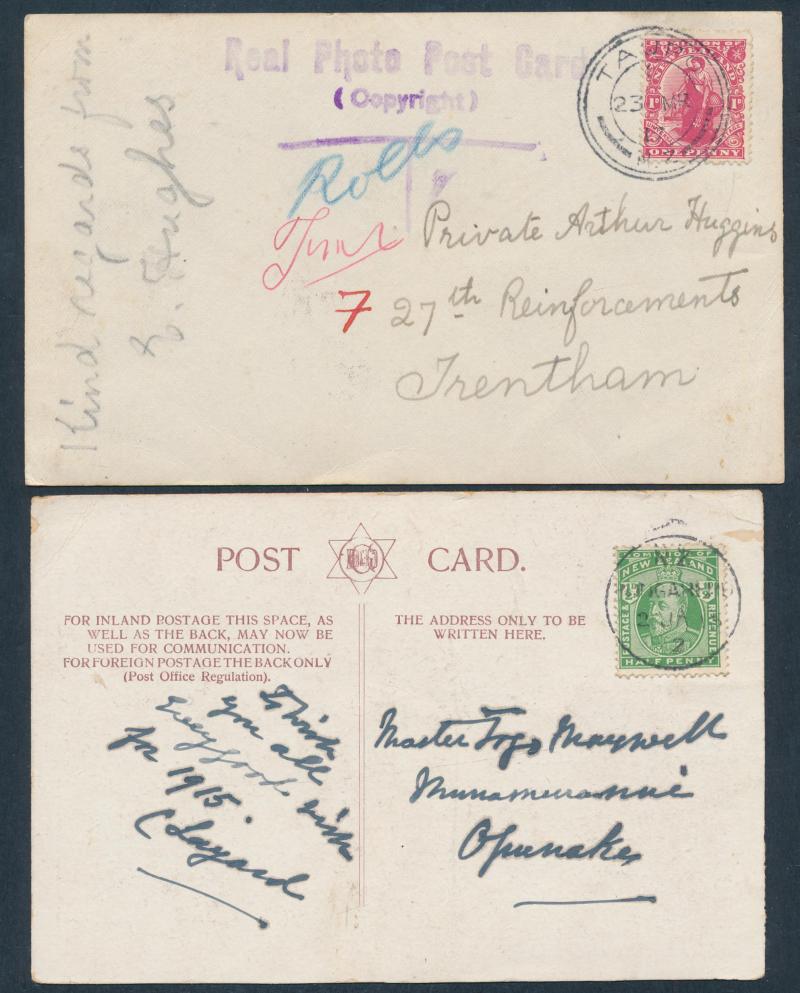 Real Photo Post Card
(Copyright)
Kind regards from
E. Hughes
DOMINION OF
NEW ZEALAND
1D 1D
ONE PENNY
23 MR
Private Arthur Huggins
7 27th Reinforcements
Trentham
POST CARD.
FOR INLAND POSTAGE THIS SPACE, AS
WELL AS THE BACK, MAY NOW BE
USED FOR COMMUNICATION.
FOR FOREIGN POSTAGE THE BACK ONLY
(Post Office Regulation).
THE ADDRESS ONLY TO BE
WRITTEN HERE.
DOMINION OF
NEW ZEALAND
POSTAGE & REVENUE
HALF PENNY
I wish
you all
Every good wish
for 1915.
C Layard
Master Togo Maxwell
Opunake